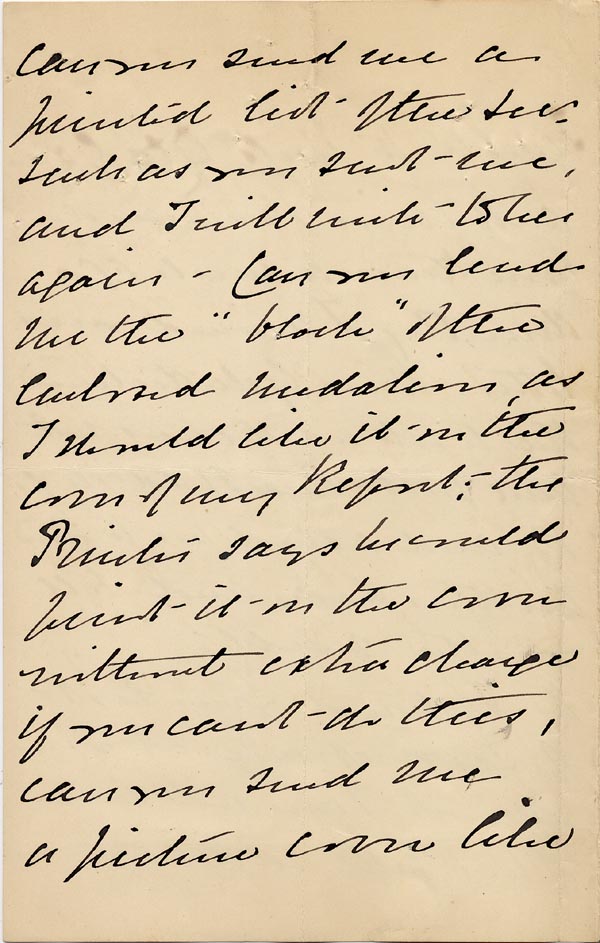 can you send me a
printed list of the Soc:
such as you sent me,
and I will write to her
again - Can you lend
me the "block" of the
enclosed medalion, as
I should like it on the
cover of my Report; the
Printer says he could
print it on the cover
without extra charge
if you cant do this,
can you send me
a picture cover like